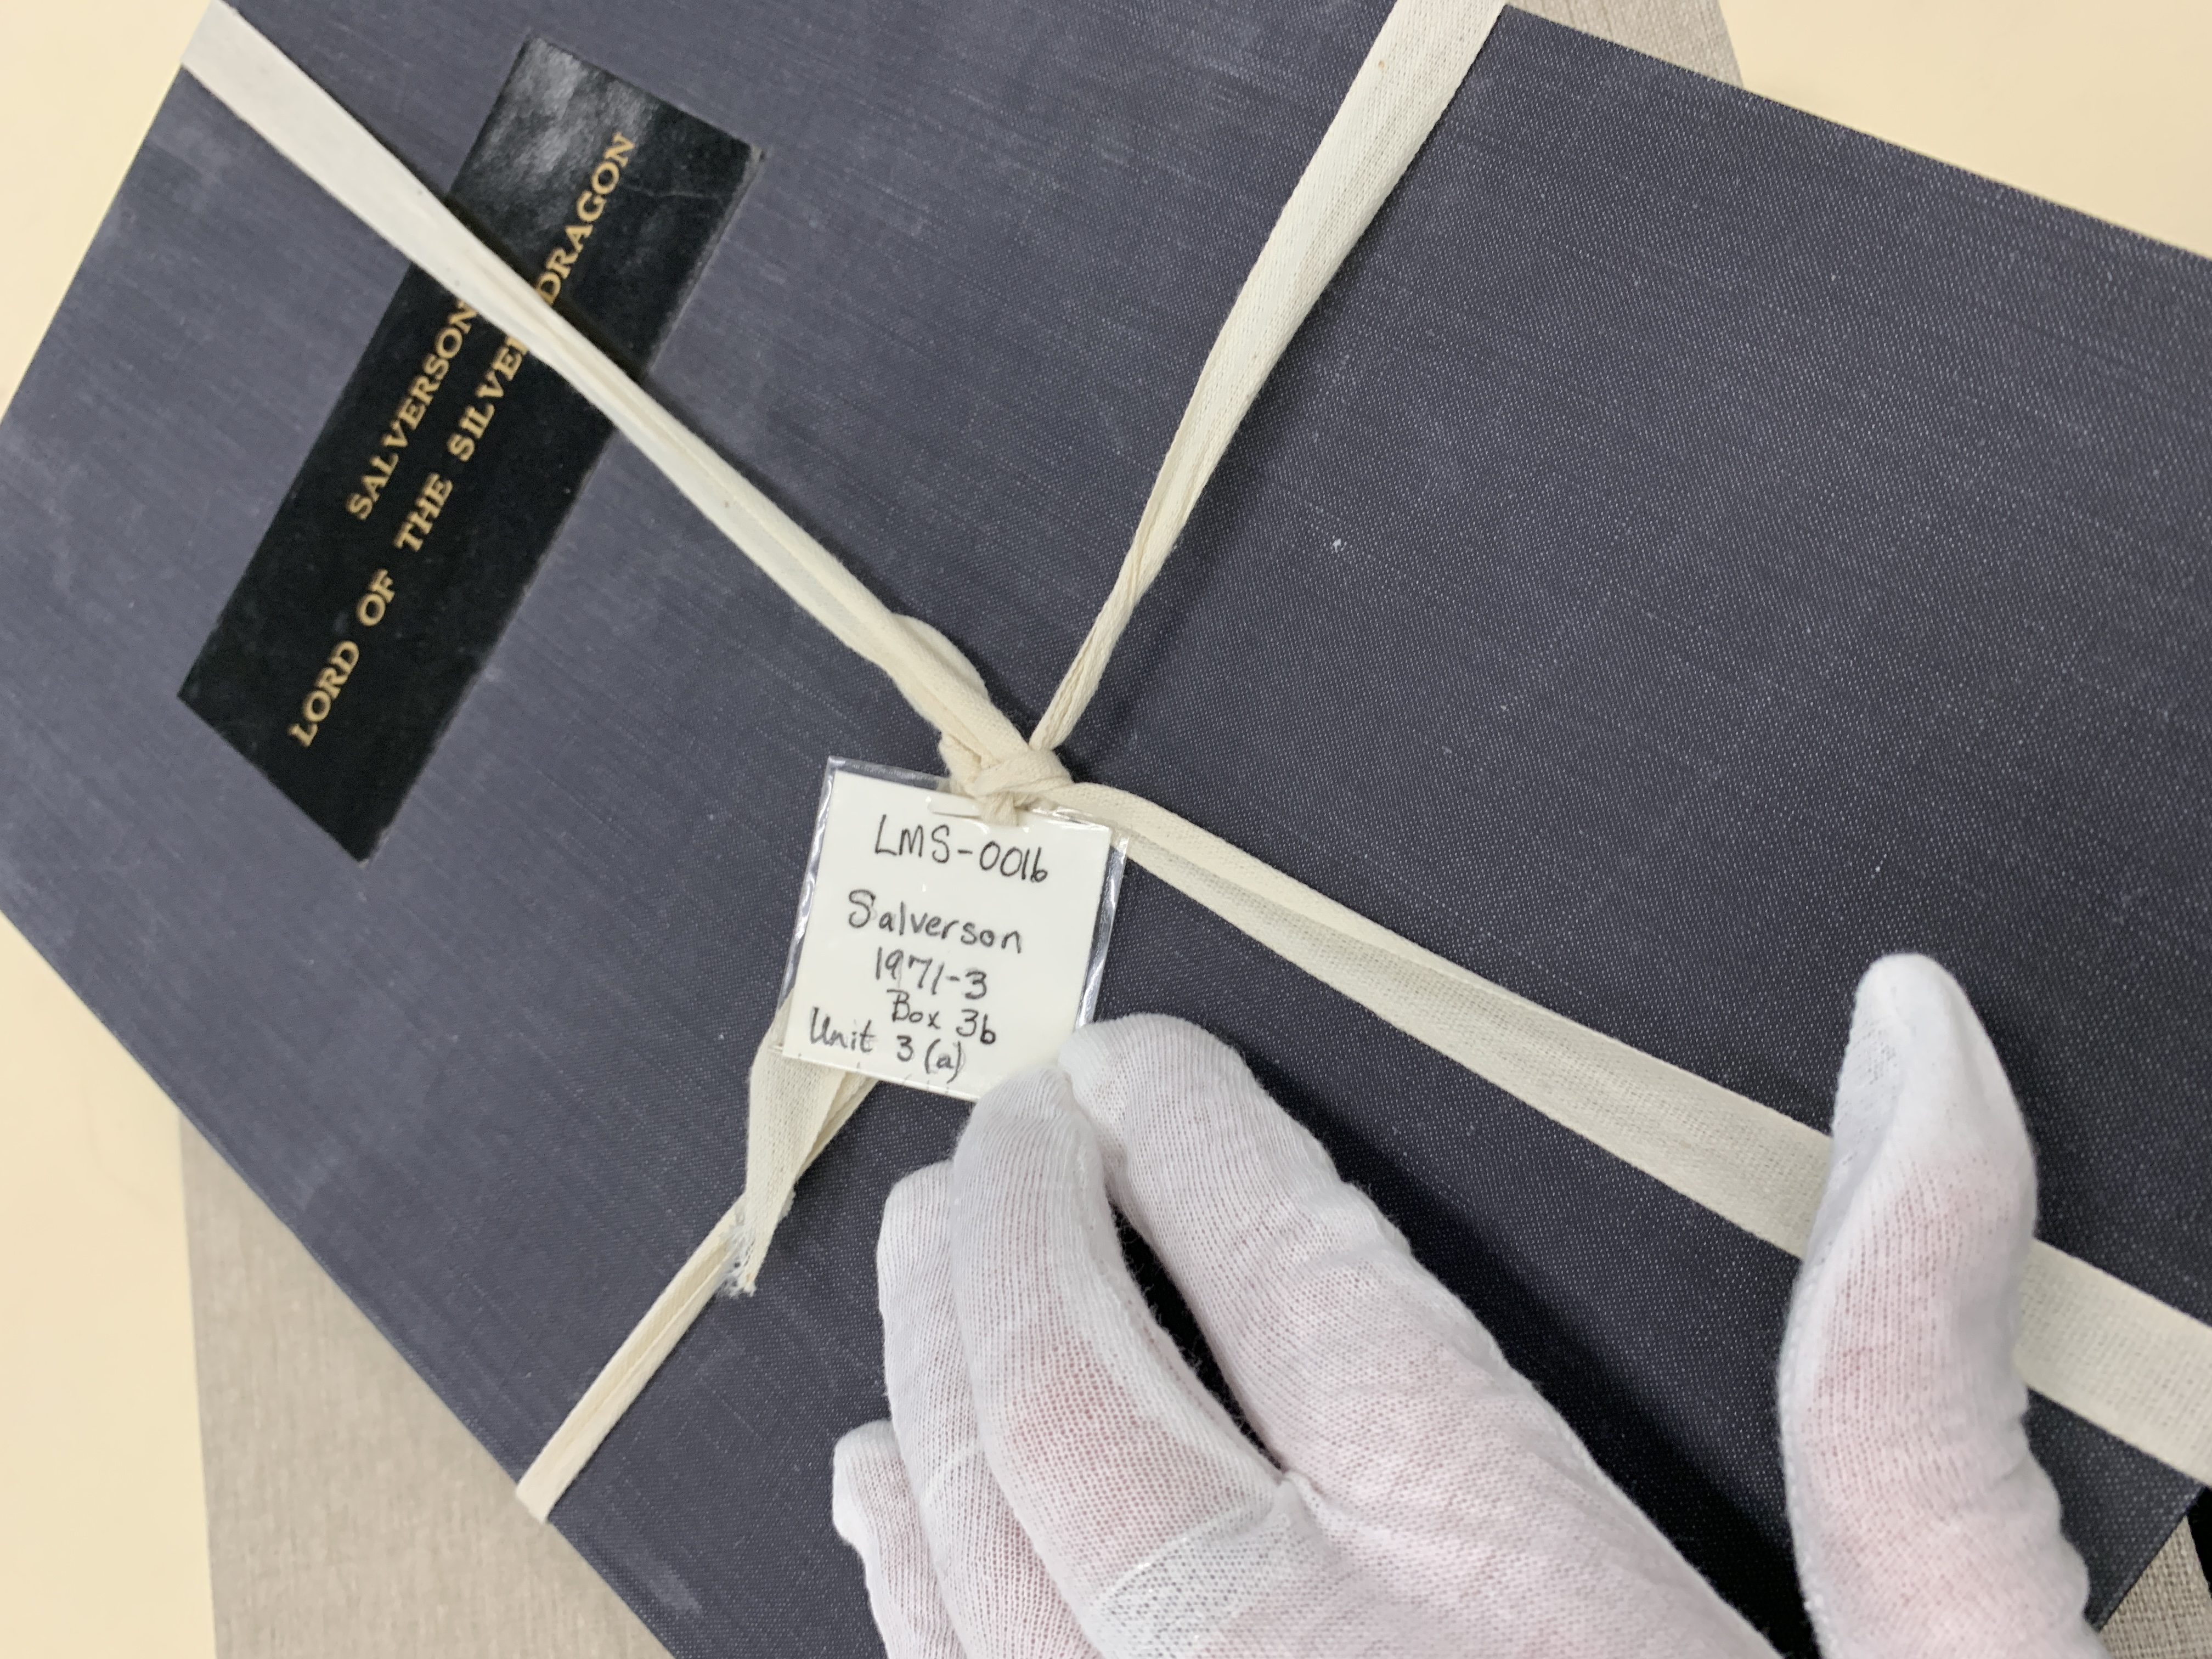 SALVERSON
LORD OF THE SILVER DRAGON
LMS-0016
Salverson
1971-3
Box 36
Unit 3 (a)